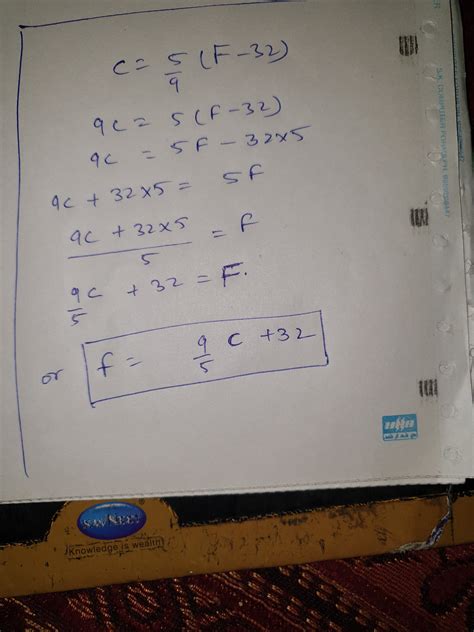 C = 5/9 (F-32)
9C = 5(F-32)
9C = 5F - 32×5
9C + 32×5 = 5F
9C + 32×5 / 5 = F
9/5 C + 32 = F.
or f = 9/5 C +32
Knowledge is wealth